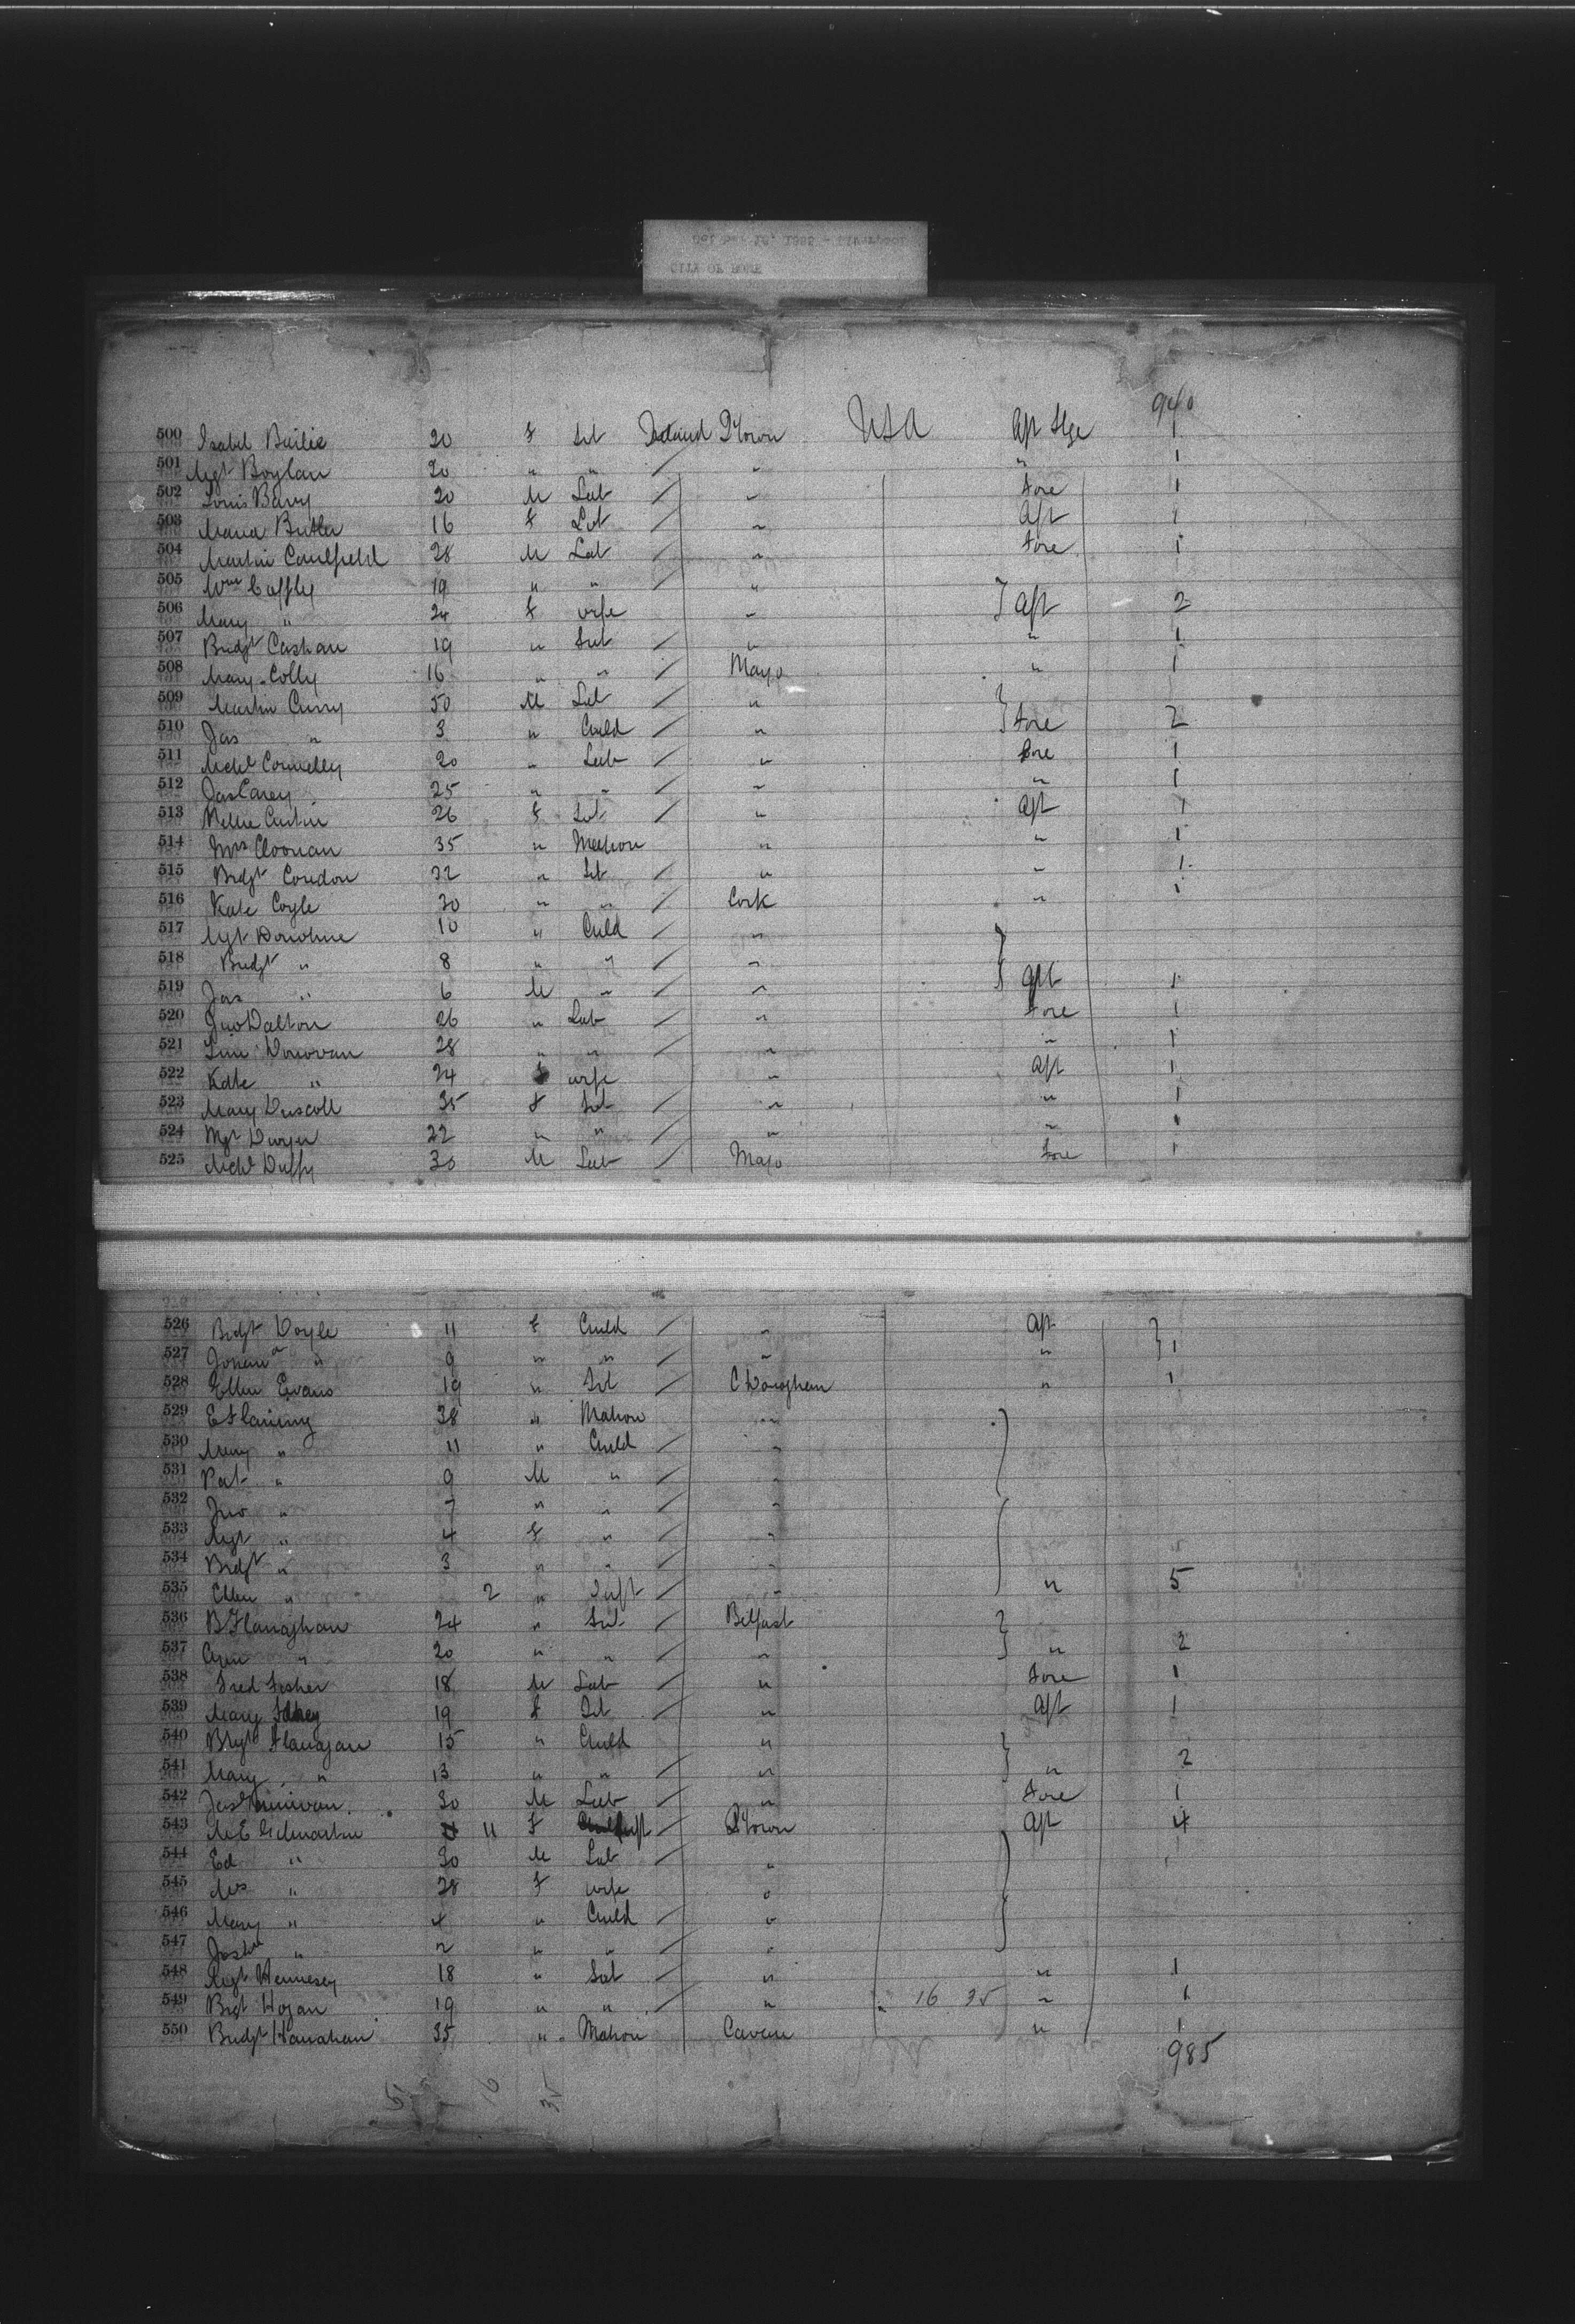 CITY OF ROME
940
500 Isabel Bailie 20 F Sst Ireland QTown USA Aft Stge 1
501 Mgt Boylan 20 " " / " " 1
502 Louis Barry 20 M Lab / " Fore 1
503 Maria Butler 16 F Sst / " Aft 1
504 Martin Caulfield 28 M Lab / " Fore 1
505 Wm Caffly 19 " " / "
506 Mary " 24 F wife " Aft 2
507 Bridgt Cashan 19 " Sst / " " 1
508 Mary Colly 16 " " / Mayo " 1
509 Martin Curry 50 M Lab / "
510 Jas " 3 " Child / " Fore 2
511 Michl Connelly 20 " Lab / " Fore 1
512 Jas Carey 25 " " / " " 1
513 Nellie 26 F Sst / " Aft 1
514 Mrs Cloonan 35 " Matron " " 1
515 Bridgt Condon 22 " Sst / " " 1
516 Kate Coyle 30 " " / Cork " 1
517 Mgt Donohue 10 " Child / "
518 Bridgt " 8 " " / "
519 Jas " 6 M " / " Aft 1
520 Jno Dalton 26 " Lab / " Fore 1
521 Donovan 28 " " / " " 1
522 Kate " 24 F wife " Aft 1
523 Mary Driscoll 35 F Sst / " " 1
524 Mgt Dwyer 22 " " / " " 1
525 Michl Duffy 30 M Lab / Mayo Fore 1
526 Bridgt Doyle 11 F Child / " Aft
527 Johana " 9 " " / " " 1
528 Ellen Evans 19 " Sst / " 1
529 E Flaning 38 " Matron "
530 Mary " 11 " Child / "
531 Pat " 9 M " / "
532 Jno " 7 " " / "
533 Mgt " 4 F " / "
534 Bridgt " 3 " " / "
535 Ellen " 2 " Inft / " " 5
536 B Flanaghan 24 " Sst Belfast
537 " 20 " " " " 2
538 Fred Fisher 18 M Lab / " Fore 1
539 Mary 19 F Sst / " Aft 1
540 Brgt Flanagan 15 " Child "
541 Mary " 13 " " / " " 2
542 Jas 30 M Lab / " Fore 1
543 M E Gilmartin 11 F Inft / QTown Aft 4
544 Ed " 30 M Lab / "
545 Mrs " 28 F wife "
546 Mary " 4 " Child / "
547 " 2 " " / "
548 Mgt Hennesey 18 " Sst / " " 1
549 Brgt Hogan 19 " " / " " 16 35 " 1
550 Bridgt Hanahan 35 " Matron Cavan " 1
985
51 16 35